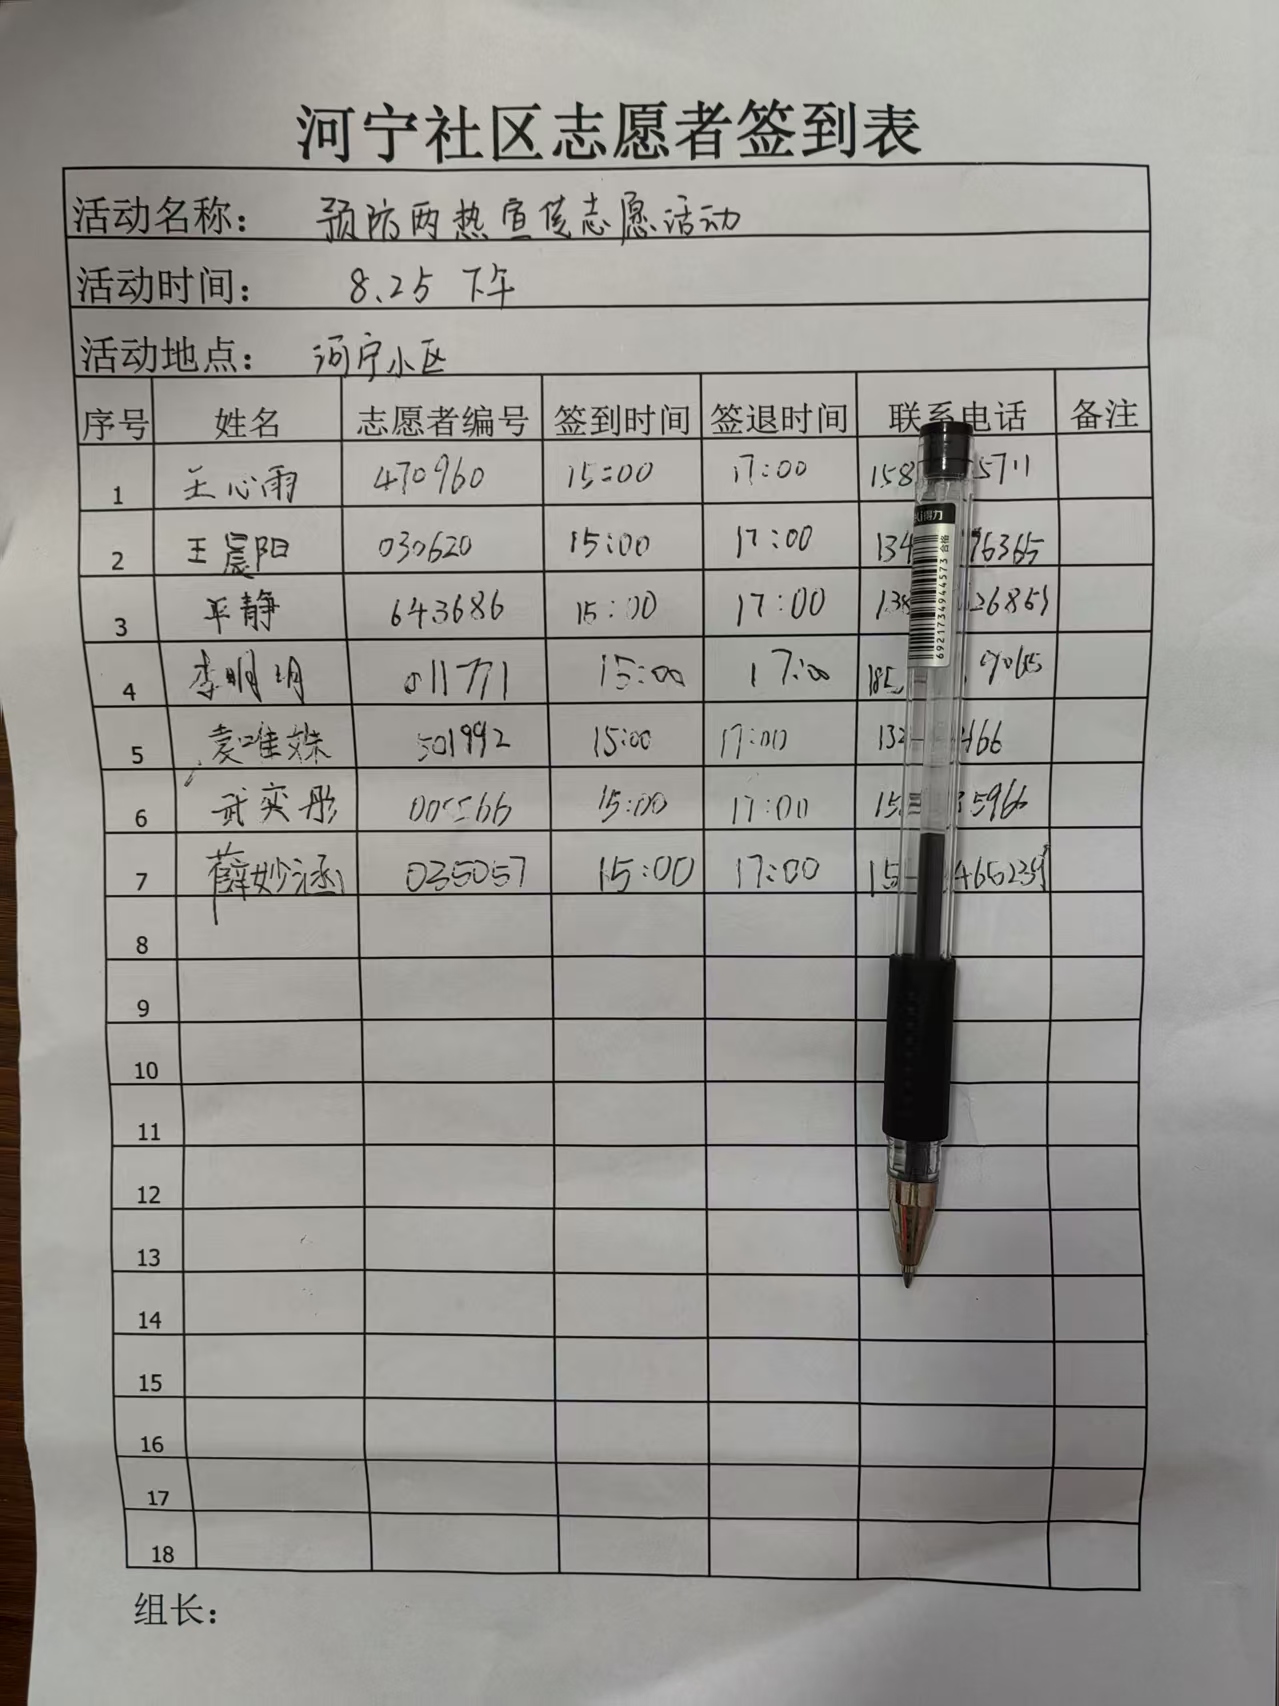 河宁社区志愿者签到表
活动名称： 预防两热宣传志愿活动
活动时间： 8.25 下午
活动地点： 河宁小区
序号 姓名 志愿者编号 签到时间 签退时间 联系电话 备注
1 王心雨 470960 15:00 17:00 158 5711
2 王晨阳 030620 15:00 17:00 134 76365
3 平静 643686 15:00 17:00 138 26859
4 李明明 011771 15:00 17:00 185
5 袁唯姝 501992 15:00 17:00 132 466
6 武奕彤 005566 15:00 17:00 15 5966
7 薛妙涵 035057 15:00 17:00 15 465239
8
9
10
11
12
13
14
15
16
17
18
组长：
得力
合格
6921734944573